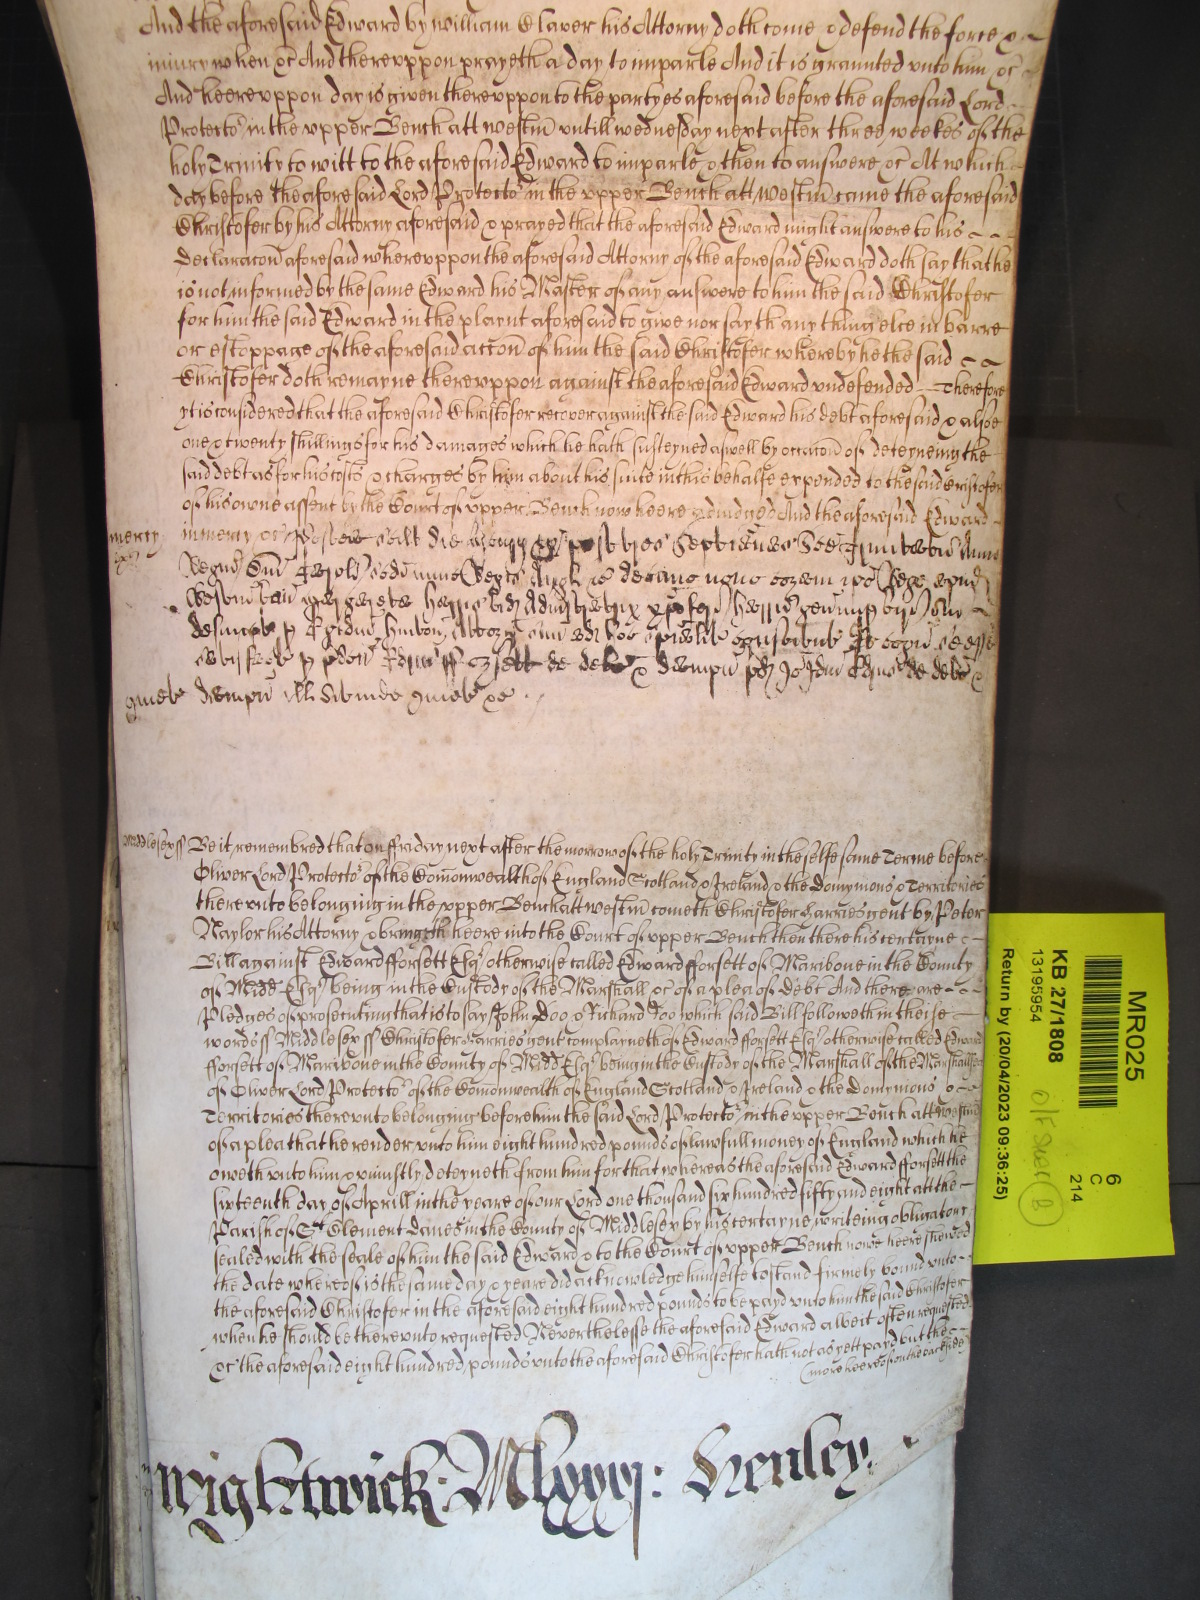 And the aforesaid Edward by William Claver his Attorny doth come & defend the force &
iniury when &c And thereuppon prayeth a day to imparle And it is graunted unto him &c
And heereuppon day is given thereuppon to the partyes aforesaid before the aforesaid Lord
Protector in the upper Bench att Westm untill wednesday next after three weekes of the
holy Trinity to witt to the aforesaid Edward to imparle & then to answere &c At which
day before the aforesaid Lord Protector in the upper Bench att Westm came the aforesaid
Christofer by his Attorny aforesaid & prayed that the aforesaid Edward might answere to his
declaracon aforesaid whereuppon the aforesaid Attorny of the aforesaid Edward doth say that he
is not informed by the same Edward his Master of any answere to him the said Christofer
for him the said Edward in the playnt aforesaid to give nor sayth any thing else in barre
or estoppage of the aforesaid accon of him the said Christofer whereby he the said
Christofer doth remayne thereuppon against the aforesaid Edward undefended Therefore
yt is considered that the aforesaid Christofer recover against the said Edward his debt aforesaid & alsoe
one & twenty shillings for his damages which he hath susteyned aswell by occacon of deteyneing the
said debt as for his costs & charges by him about his suite in this behalfe expended to the said Cristofer
of his owne assent by the Court of upper Bench now heere adiudged And the aforesaid Edward
mercy in mercy &c
Middlesex ss Be it remembred that on ffriday next after the morrow of the holy Trinity in the selfe same Terme before
Oliver Lord Protector of the Comonwealth of England Scotland & Ireland & the Dominyons & Territories
thereunto belonging in the upper Bench att Westm cometh Christofer Harries gent by Peter
Naylor his Attorny & bringeth heere into the Court of upper Bench then there his certayne
Bill against Edward fforsett Esqr otherwise called Edward fforsett of Maribone in the County
of Midd Esqr being in the Custody of the Marshall &c of a plea of debt And there are
Pledges of prosecuting that is to say John Doo & Richard Roo which said Bill followeth in theise
words ss Middlesex ss Christofer Harries gent complayneth of Edward fforsett Esqr otherwise called Edward
fforsett of Maribone in the County of Midd Esqr being in the Custody of the Marshall of the Marshallsea
of Oliver Lord Protector of the Comonwealth of England Scotland & Ireland & the Dominyons &
Territories thereunto belonging before him the said Lord Protector in the upper Bench att Westm
of a plea that he render unto him eight hundred pounds of lawfull money of England which he
oweth unto him & uniustly deteyneth from him for that whereas the aforesaid Edward fforsett the
sixteenth day of Aprill in the yeare of our Lord one thousand six hundred fifty and eight at the
Parish of St Clement Danes in the County of Middlesex by his certayne writeing obligatory
sealed with the seale of him the said Edward & to the Court of upper Bench nowe heere shewed
the date whereof is the same day & yeare did acknowledge himselfe to stand firmely bound unto
the aforesaid Christofer in the aforesaid eight hundred pounds to be payd unto him the said Christofer
when he should be thereunto requested Neverthelesse the aforesaid Edward albeit often requested
&c the aforesaid eight hundred pounds unto the aforesaid Christofer hath not as yett payd but the
(more heereof on the backside)
Wightwick: Mlxxxj: Henley
MR025
6
C
214
KB 27/1808
13195954
Return by (20/04/2023 09:36:25)